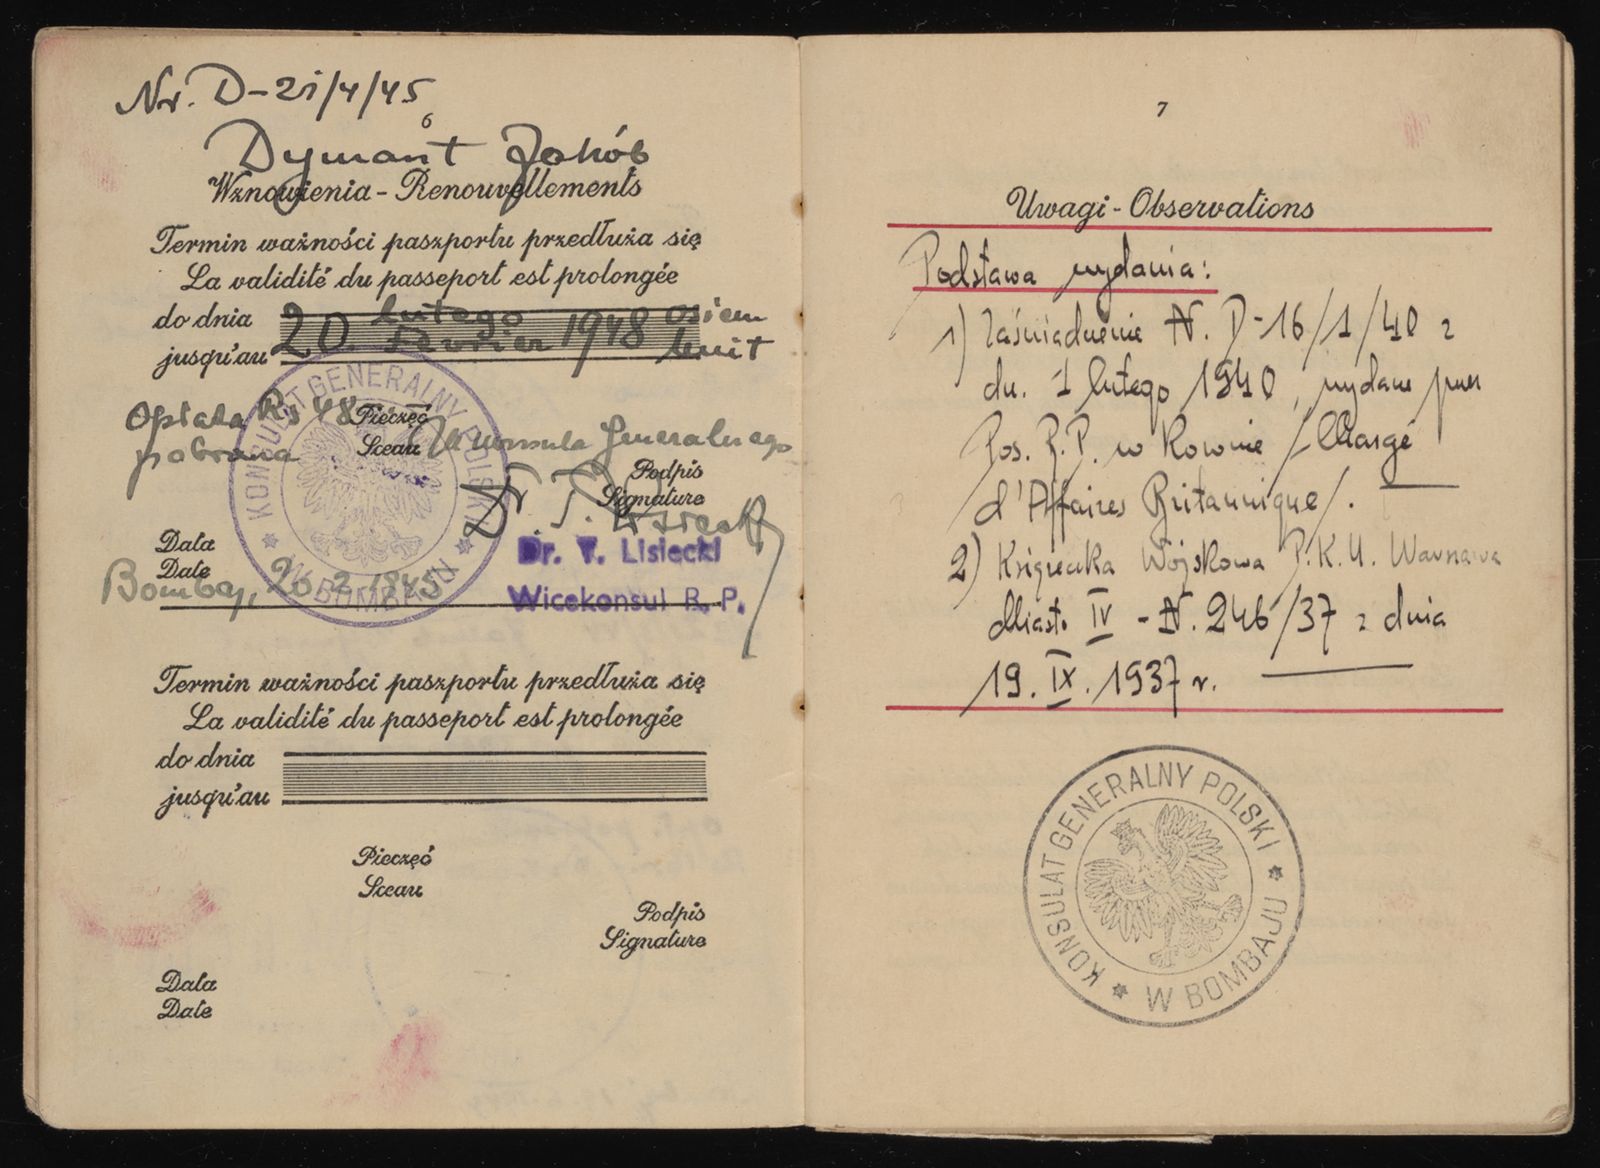 Nr. D-21/4/45
6
Dymant Jakób
Wznowienia - Renouvellements
Termin ważności paszportu przedłuża się
La validité du passeport est prolongée
do dnia 20. lutego 1948 osiem
jusqu'au Février huit
Opłata Rs 48
pobrana
Pieczęć
Sceau
Konsula Generalnego
Podpis
Signature
Dr. T. Lisiecki
Dr. T. Lisiecki
Wicekonsul R. P.
Data
Date
Bombaj, 20.2.1945
KONSULAT GENERALNY POLSKI
W BOMBAJU
Termin ważności paszportu przedłuża się
La validité du passeport est prolongée
do dnia
jusqu'au
Pieczęć
Sceau
Podpis
Signature
Data
Date
7
Uwagi - Observations
Podstawa wydania:
1) Zaświadczenie Nr. D-16/1/40 z
dn. 1 lutego 1940, wydane przez
Pos. R.P. w Kownie /Chargé
d'Affaires Britannique/.
2) Książeczka Wojskowa P.K.U. Warszawa
Miasto IV - Nr. 246/37 z dnia
19. IX. 1937 r.
KONSULAT GENERALNY POLSKI
W BOMBAJU